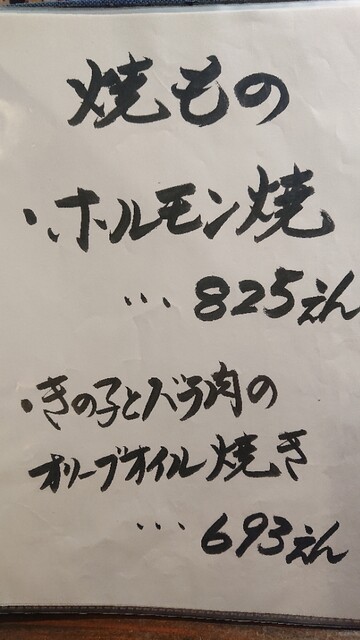 焼もの
・ホルモン焼
… 825えん
・きの子とバラ肉の
オリーブオイル焼き
… 693えん